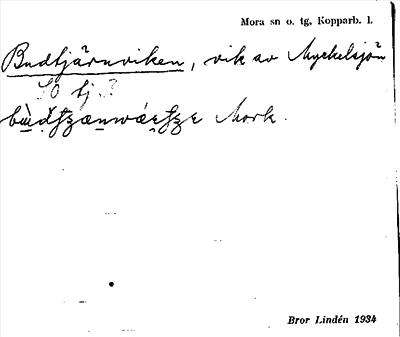 Mora sn o. tg, Kopparb. l.
Budtjärnviken, vik av Myckelsjön
tj.?
Mork.
Bror Lindén 1934